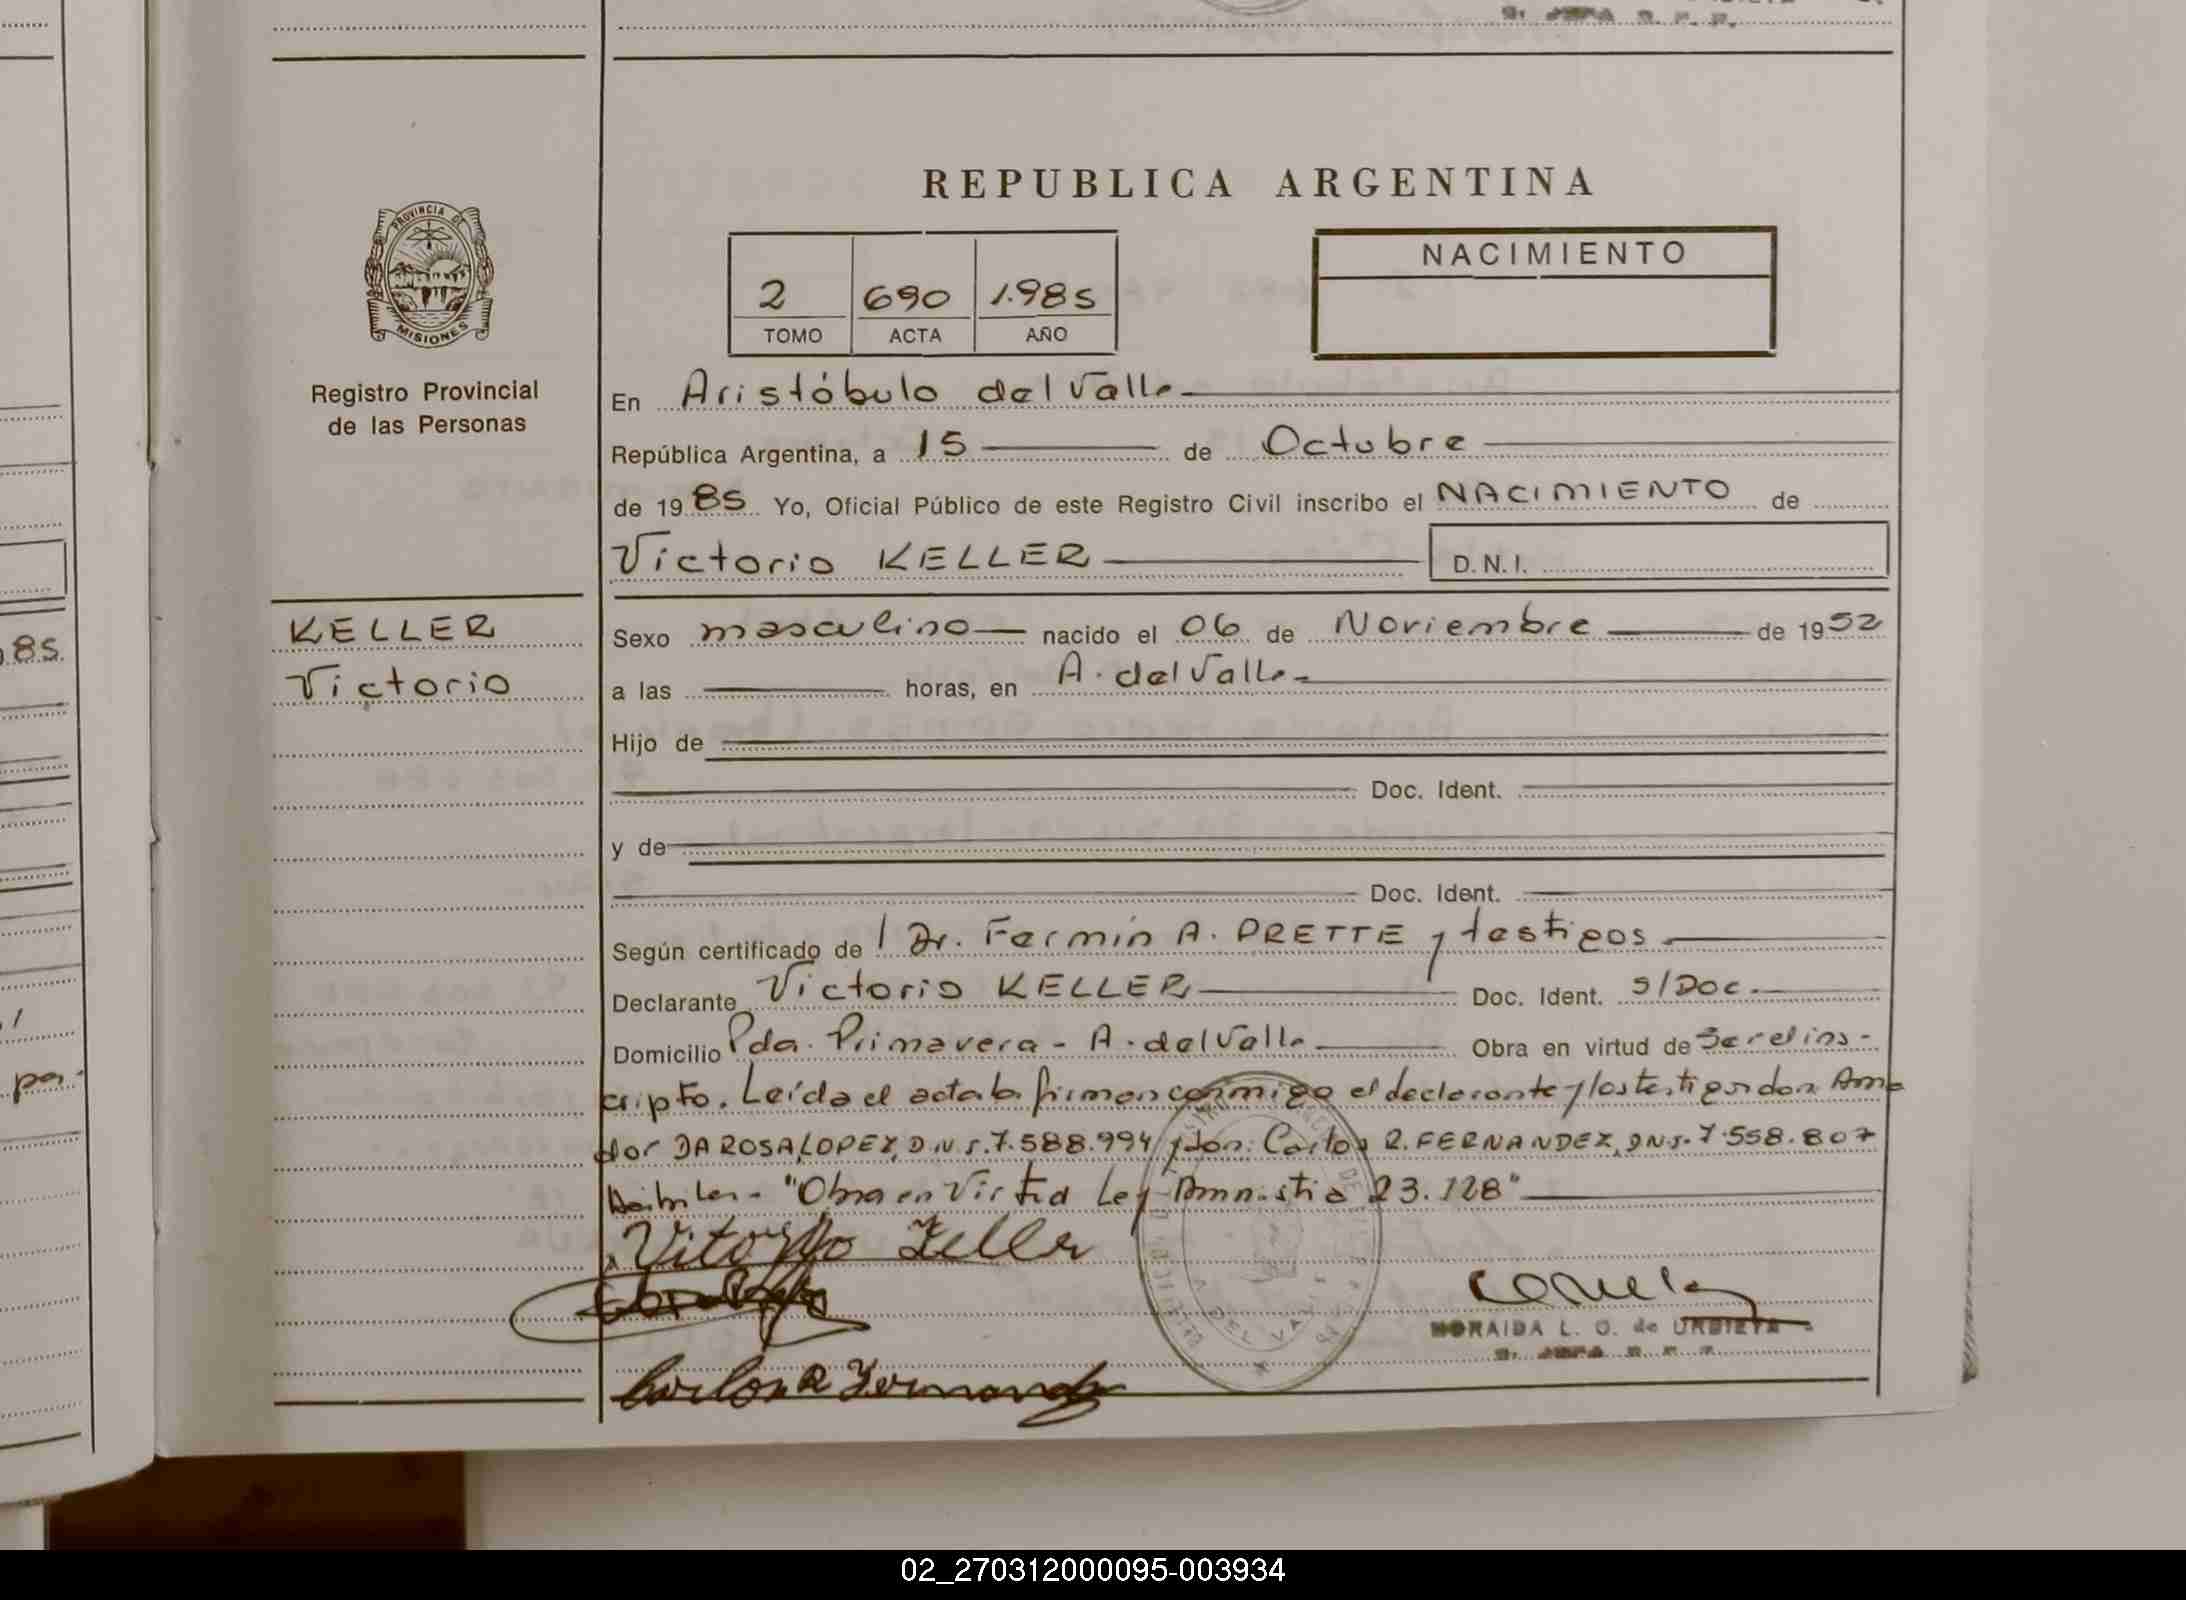 REPUBLICA ARGENTINA
PROVINCIA DE
MISIONES
Registro Provincial
de las Personas
2 690 1.985
TOMO ACTA AÑO
NACIMIENTO
En Aristóbulo del Valle
República Argentina, a 15 de Octubre
de 1985 Yo, Oficial Público de este Registro Civil inscribo el NACIMIENTO de
Victorio KELLER D.N.I.
KELLER
Victorio
85
Sexo masculino nacido el 06 de Noviembre de 1952
a las horas, en A. del Valle
Hijo de
Doc. Ident.
y de
Doc. Ident.
Según certificado de Dr. Fermín A. PRETTE y testigos
Declarante Victorio KELLER Doc. Ident. S/Doc.
Domicilio Pda. Primavera - A. del Valle Obra en virtud de Ser el ins-
cripto. Leída el acta la firman conmigo el declarante y los testigos don Ama
dor DA ROSA LOPEZ, D.N.I. 7.588.994 y don: Carlos R. FERNANDEZ, D.N.I. 7.558.807
Hábiles - "Obra en Virtud Ley Amnistia 23.128"
Vitorio Keller
Carlos R Fernandez
MORAIDA L. O. de URBIETA
A. DEL VALLE
02_270312000095-003934